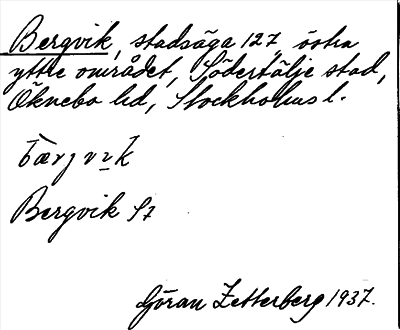 Bergvik, stadsäga 127, östra
yttre området, Södertälje stad,
Öknebo hd, Stockholms l.
bærjvɩk
Bergvik St
Göran Zetterberg 1937.